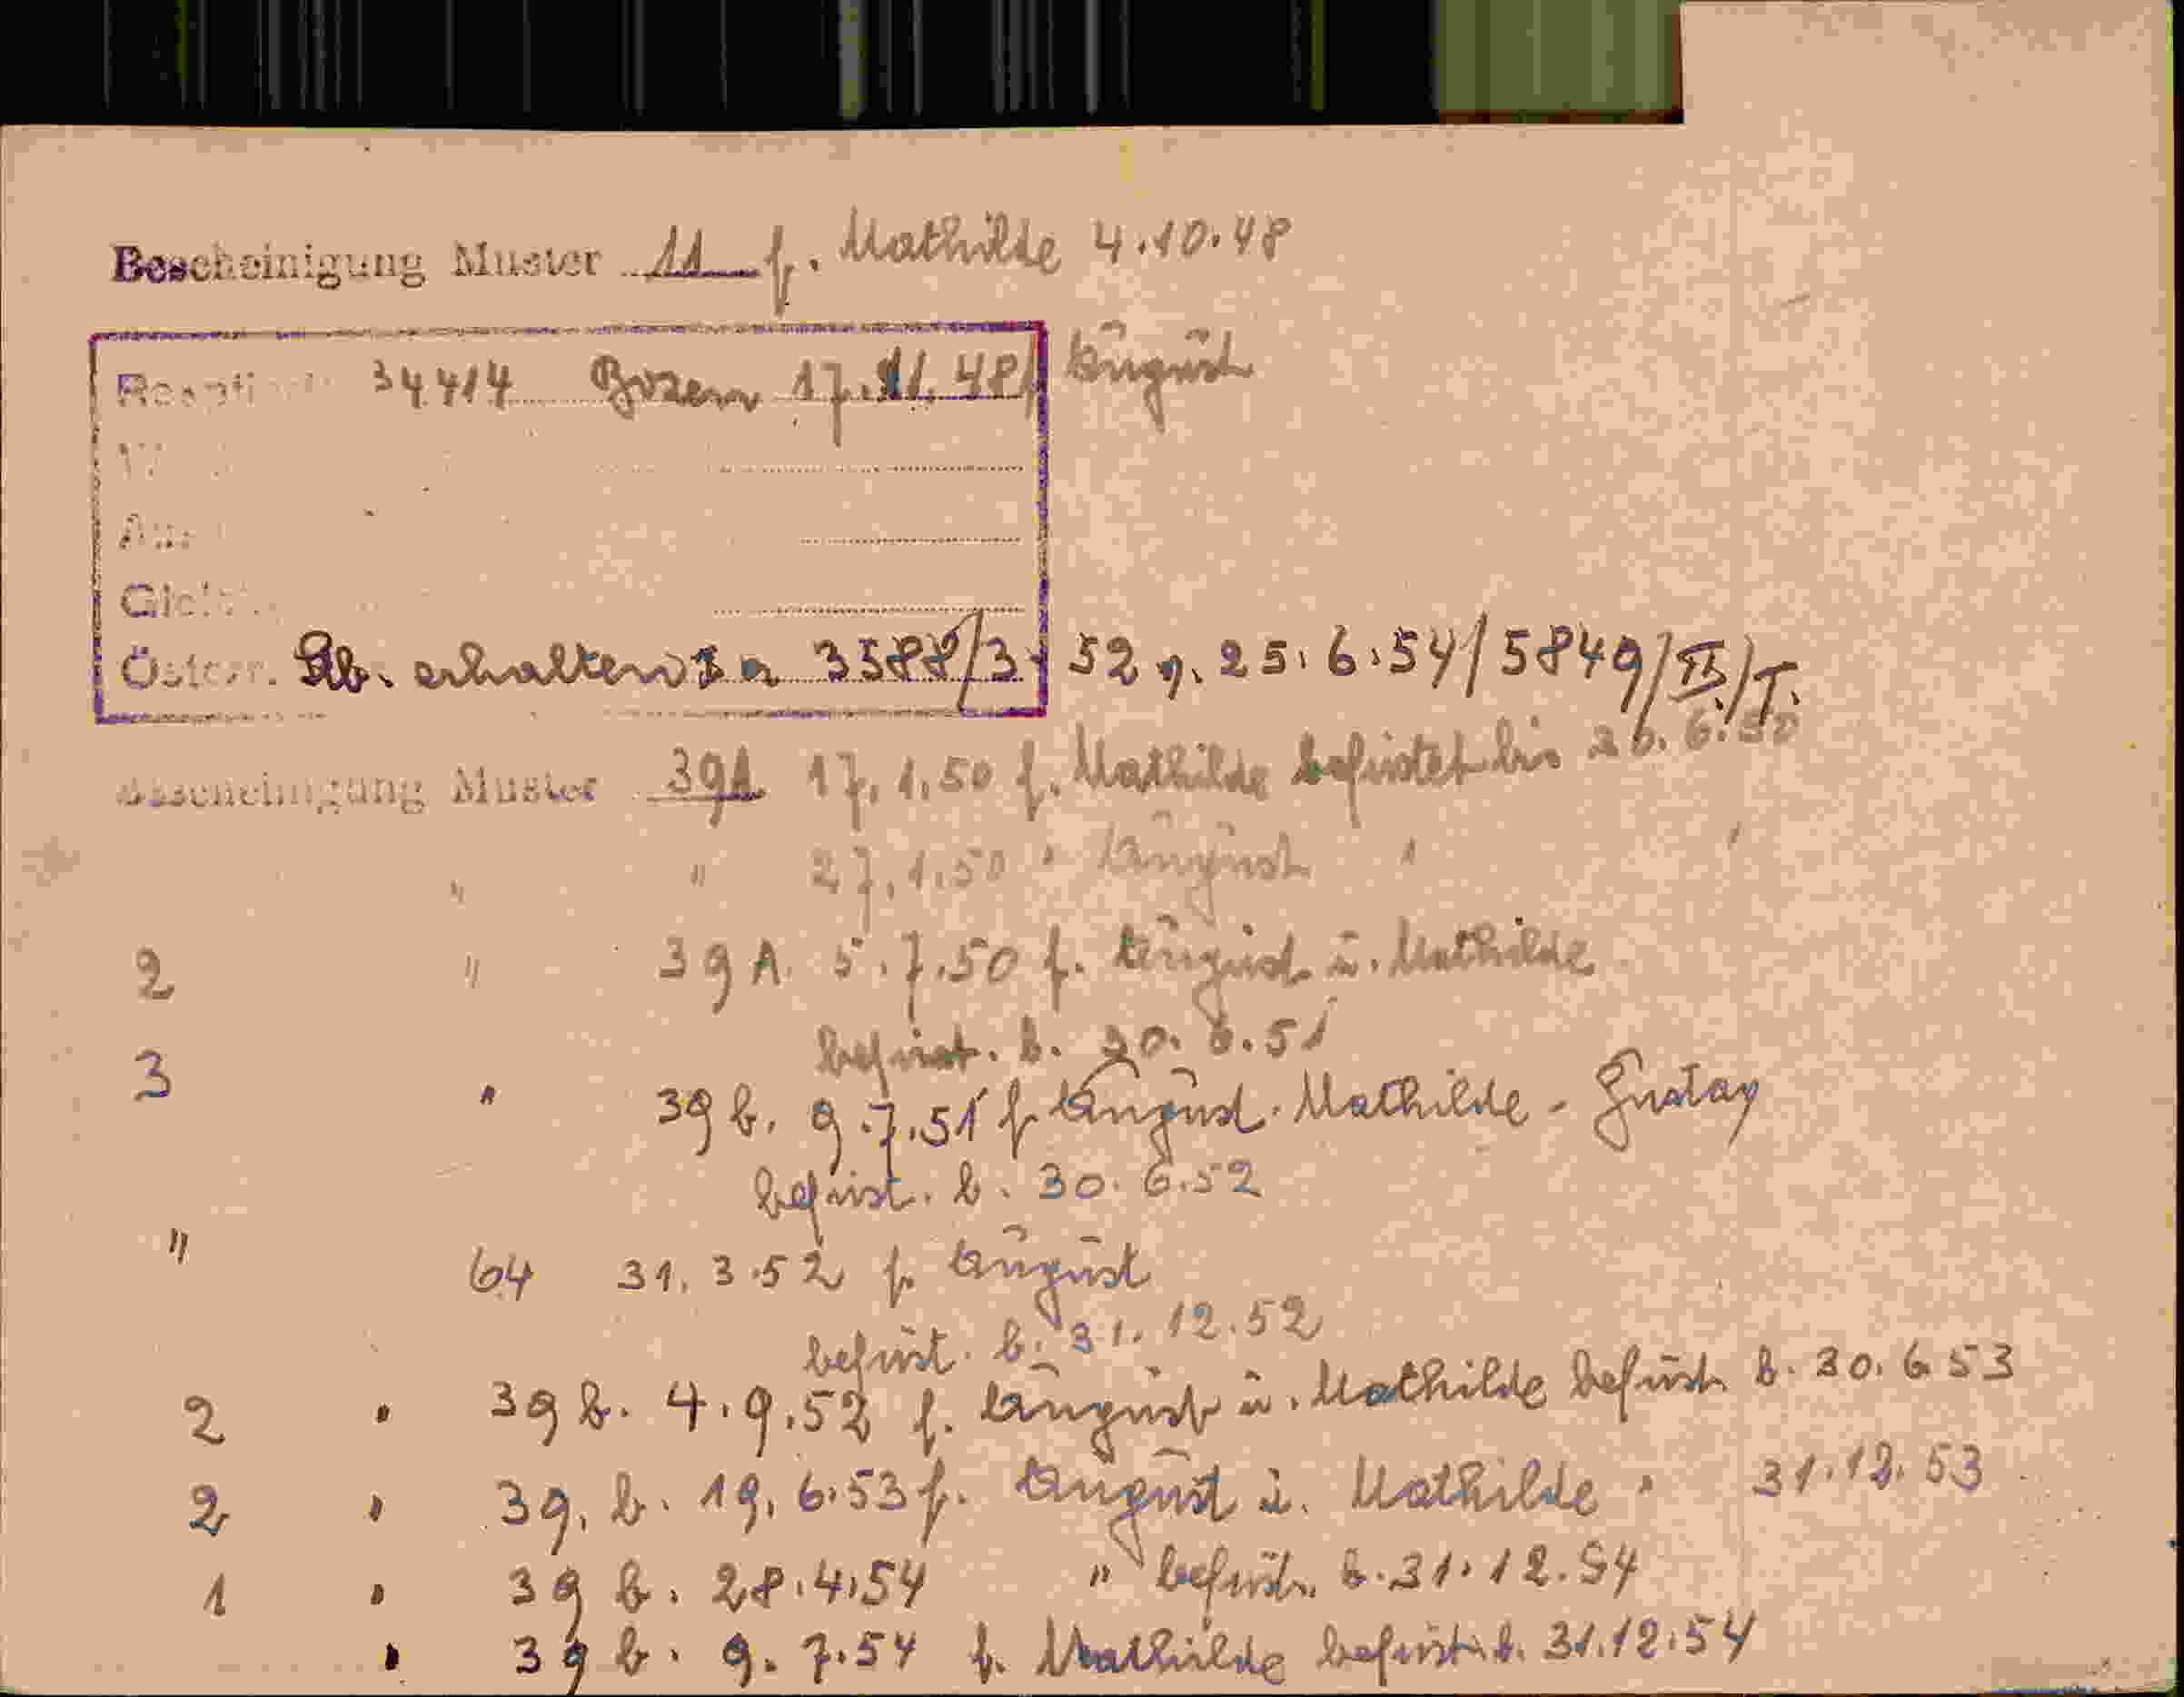 Bescheinigung Muster 11 f. Mathilde 4.10.48
34414 Bozen 17.11.48 f August
Österr. Stb. erhalten 3588/3 52 v. 25.6.54/5849/II/T.
Bescheinigung Muster 39A 17.1.50 f. Mathilde befristet bis 6.50
" " 27.1.50 " August " "
2 " 39 A. 5.7.50 f. August u. Mathilde
befrist. b. 30.6.51
3 " 39 b. 9.7.51 f August. Mathilde - Gustav
befrist. b. 30.6.52
" 64 31.3.52 f. August
befrist. b. 31.12.52
2 " 39 b. 4.9.52 f. August u. Mathilde befrist. b. 30.6.53
2 " 39. b. 19.6.53 f. August u. Mathilde " 31.12.53
1 " 39 b. 28.4.54 " befrist. b. 31.12.54
" 39 b. 9.7.54 f. Mathilde befrist. b. 31.12.54